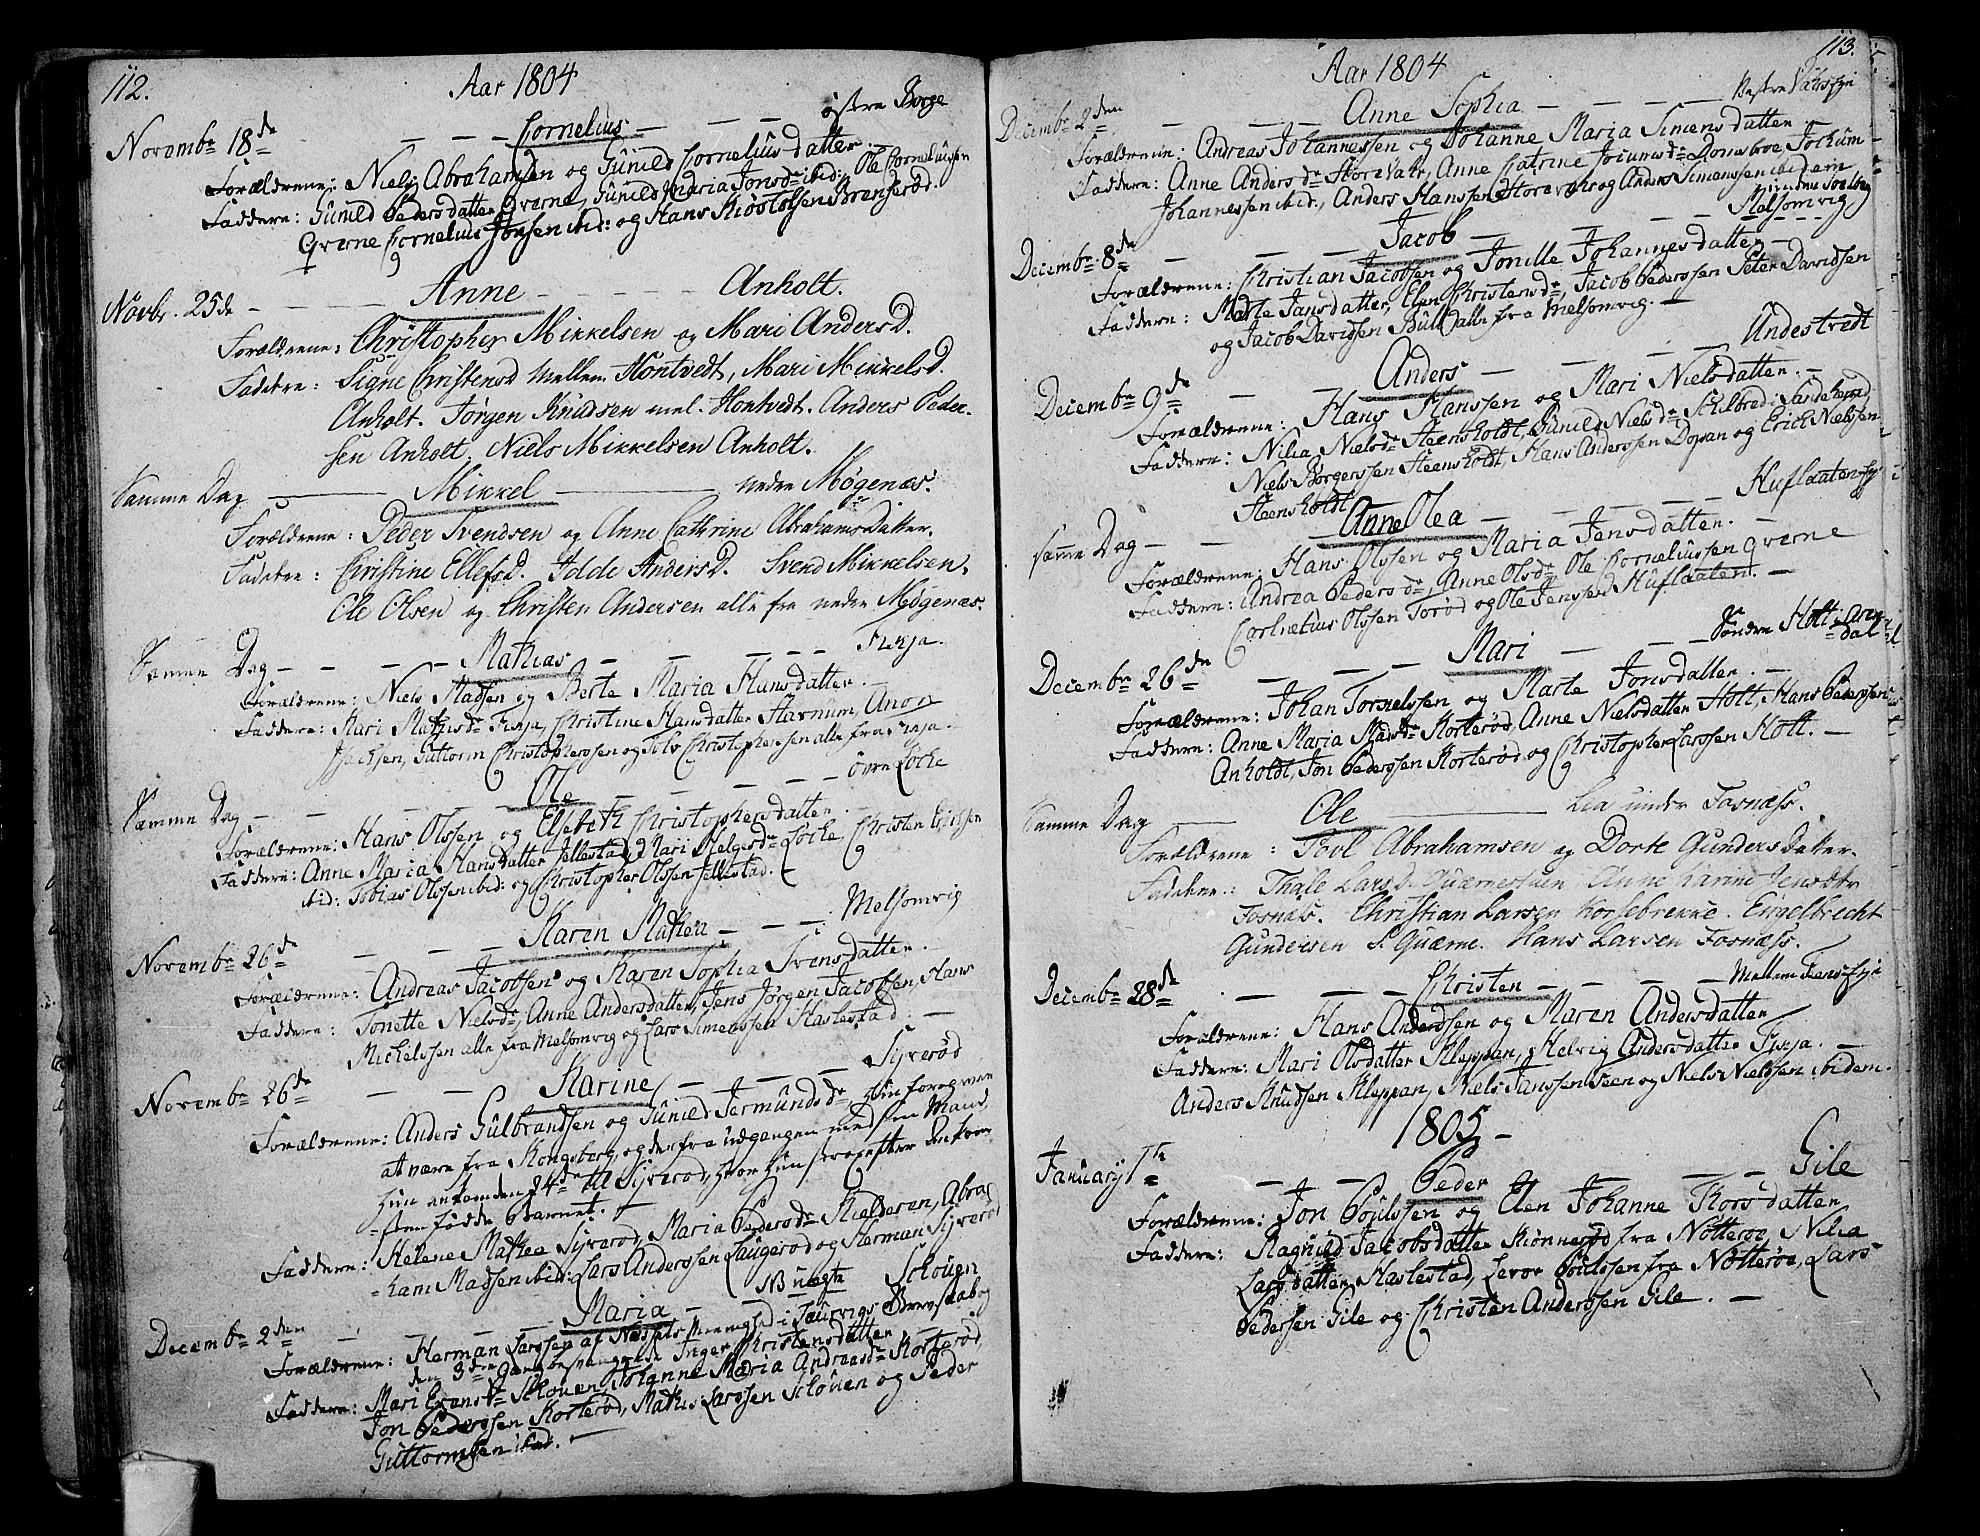 112.
Aar 1804
Novembr 18de — — — Cornelius — — østre Borge
Forældrene: Niels Abrahamsen og Gunild Corneliusdatter.
Faddere: Gunild Pedersdatter Qverne, Gunild Maria Jonsdr ibid: Ole Corneliussen
Qverne Cornelius Jonsen ibid: og Hans Kiøstolsen Brænserød.
Novbr. 25de — — — Anne — — — Anholt.
Forældrene: Christopher Mikkelsen og Mari AndersD.
Fadderne: Signe ChristensD mellem Hontvedt, Mari MikkelsD.
Anholt. Jørgen Knudsen mel. Hontvedt. Anders Peder-
sen Anholt. Niels Mikkelsen Anholt.
Samme Dag — Mikkel — nedre Møgenæs.
Forældrene: Peder Svendsen og Anne Cathrine AbrahamsDatter.
Faddere: Christine EllefsD. Idde AndersD. Svend Mikkelsen.
Ole Olsen og Christen Andersen alle fra nedre Møgenæs.
Samme Dag — — — Mathias — — — Fresja.
Forældrene: Niels Madsen og Berte Maria Hansdatter.
Faddere: Kari Mathisdr Fresja, Christine Hansdatter Havnum, Anon
Isachsen, Guttorm Christophersen og Tolv Christophersen alle fra Fresja.
Samme Dag — — — Ole — — — øvre Løcke
Forældrene: Hans Olssen og Elsebeth Christophersdatter.
Faddere: Anne Maria Hansdatter Jellestad, Mari Helgesdr Løcke, Christen Erichsen
ibid: Tobias Olssen ibid: og Christopher Olssen Jellestad.
Novembr 26de — — — Karen Mathea — — Melsomvig
Forældrene: Andreas Jacobsen og Karen Sophia Svensdatter.
Faddere: Tonette Nielsdr, Anne Andersdatter, Jens Jørgen Jacobsen, Hans
Michelssen alle fra Melsomvig og Lars Simenssen Haslestad.
Novembr 26de — — Karine — — — Syverød
Forældrene: Anders Gulbrandsen og Gunild Jermundsdr hun foregiver
at være fra Kongsberg, og derfra udgangen med sin Mand,
hun ankom den 24de til Syverød, hvor hun strax efter Ankom-
sten fødde Barnet.
Faddere: Helene Mathea Syverød, Maria Pedersdr Kielderen, Abra-
ham Madsen ibid: Lars Anderssen Laugerød og Herman Syverød
NB uægte Schouen
Decembr 2den — — — Maria — —
Forældrene: Herman Larssen af Næssets Menighed i Laurvigs Grevskab og
den 3die Gang besvangrede Inger Christensdatter
Faddere: Mari Evansdr Schouen, Johanne Maria Andreasdr Korterød,
Jon Pederssen Korterød, Mathis Larssen Schouen og Peder
Guttormssen ibid.
113.
Aar 1804
Decembr 2den — — — Anne Sophia — — —
Forældrene: Andreas Johannessen og Johanne Maria Simensdatter
Faddere: Anne Andersdr Storevahr, Anne Catrine Jocumsdr Jochum
Johannessen ibid., Anders Hanssen Storevahr og Anders Simenssen ibidem
Decembr 8de — — — Jacob — — Melsomvig
Forældrene: Christian Jacobsen og Jonille Johannesdatter
Faddere: Marte Jansdatter, Elen Christensdr, Jacob Pederssen Peter Davidsen
og Jacob Davidsen Bull alle fra Melsomvig.
Decembr 9de — — Anders — — — Undestvedt
Forældrene: Hans Hanssen og Mari Nielsdatter.
Faddere: Nilia Nielsdr Steensholdt, Gunild Nielsdr Schilbred i Sandeherred
Niels Børgerssen Steensholdt, Hans Anderssen Dopan og Erich Nielssen
Steensholdt
samme Dag — — Anne Olea — — — Huflaatenejje
Forældrene: Hans Olssen og Maria Jensdatter.
Faddere: Andrea Pedersdr, Anne Olsdr Ole Corneliussen Qverne
Cornelius Olssen Torød og Ole Jenssen Huflaaten.
Decembr 26de — — — Mari — — Søndre Holt i Arendal
Forældrene: Johan Tornelssen og Marte Jonsdatter.
Faddere: Anne Maria Madsdr Korterød, Anne Nielsdatter Holt, Hans Pederssen
Anholdt, Jon Pederssen Korterød og Christopher Larssen Holt.
Samme Dag — Ole — Lia under Fosnæss.
Forældrene: Povl Abrahamsen og Dorte GundersDatter.
Faddere: Thale LarsD. Quærnestuen Anne Karine Jensdtr
Fosnæs. Christian Larsen Korsebrekke. Engelbrecht
Gundersen S. Quærne. Hans Larsen Fosnæss.
Decembr 28de — — — Christen — — — Mellem
Forældrene: Hans Anderssen og Maren Andersdatter
Faddere: Mari Olsdatter Kleppan, Helvig Andersdatter Fresja.
Anders Knudsen Kleppan, Niels Janssen Feen og Niels Nielssen ibidem.
1805
January 1te — — Peder — — Gile
Forældrene: Jon Poulssen og Elen Johanne Thorsdatter
Faddere: Ragnild Jacobsdatter Kiønnerød fra Nøtterøe, Nilia
Larsdatter Haslestad, Levor Poulssen fra Nøtterøe, Lars
Pedersen Gile og Christen Anderssen Gile.